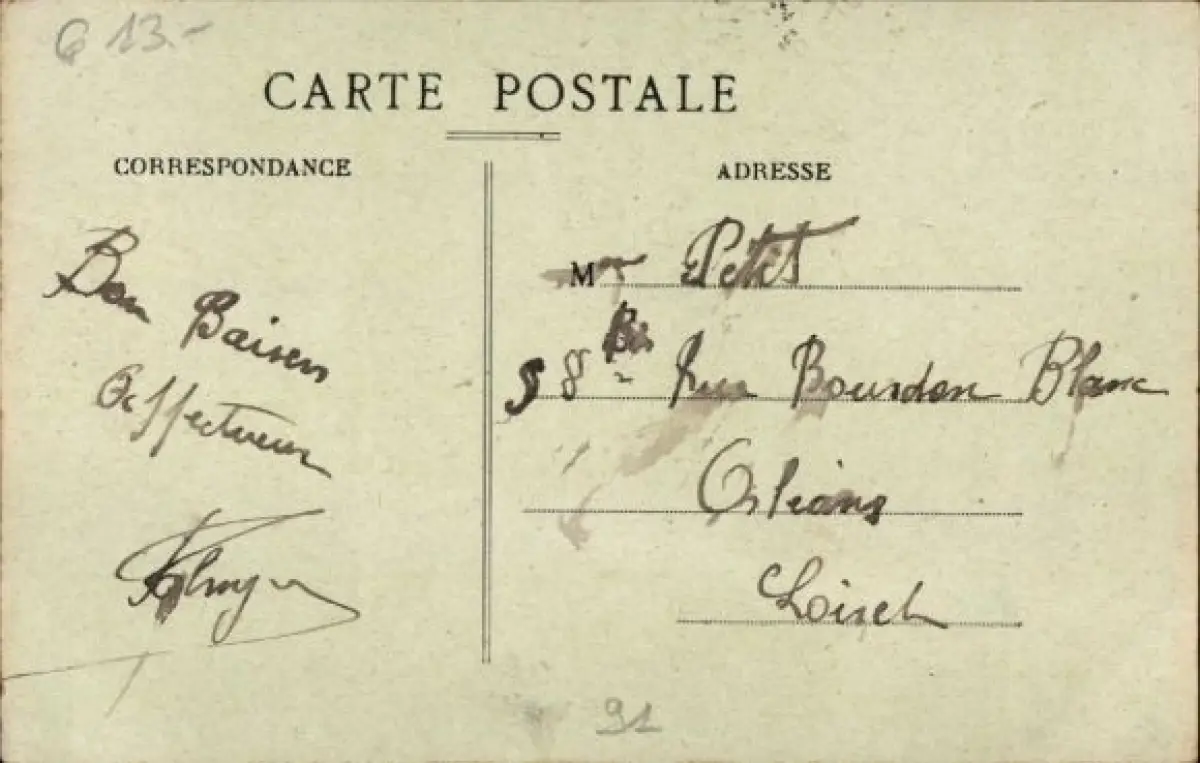 G 13.-
CARTE POSTALE
CORRESPONDANCE
ADRESSE
Bon Baisers
affectueux
Mr Petit
58 Bis Rue Bourdon Blanc
Orléans
Loiret
91